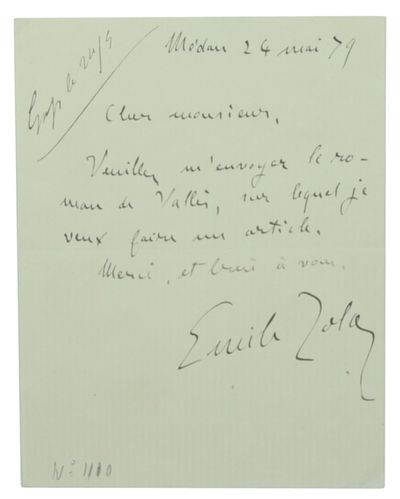 Médan 24 mai 79
Cher monsieur,
Veuillez m'envoyer le ro-
man de Vallès, sur lequel je
veux faire un article.
Merci, et bien à vous.
Emile Zola
N° 1110